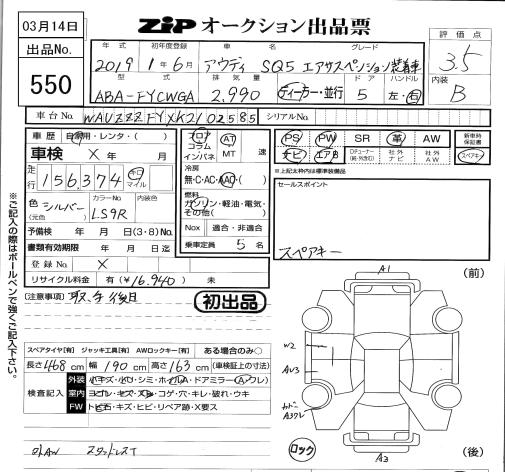 03月14日
ZIP オークション出品票
出品No.
550
年式 初年度登録 車名 グレード
2019 1年6月 アウディ SQ5 エアサスペンション装着車
型式 排気量 ドア ハンドル
ABA-FYCWGA 2,990 ディーラー・並行 5 左・右
評価点
3.5
内装
B
車台No. WAUZZZFYXK2102585 シリアルNo.
車歴 自家用・レンタ・( )
車検 X 年 月
走行 156,374 キロ マイル
色 シルバー カラーNo. 内装色
(元色) LS9R
予備検 年 月 日(3・8)No.
書類有効期限 年 月 日迄
登録No. X
リサイクル料金 有(¥16.940) 未
フロア コラム インパネ AT MT 速
冷房
無・C・AC・AAC・( )
燃料
ガソリン・軽油・電気・その他( )
Nox 適合・非適合
乗車定員 5 名
PS PW SR 革 AW
ナビ エアB 社外ナビ 社外AW
新車時保証書
スペアキー
*上記太枠内は標準装備品
セールスポイント
スペアキー
[注意事項] 取.予後日
初出品
スペアタイヤ[有] ジャッキ工具[有] AWロックキー[有] ある場合のみ○
長さ 468 cm 幅 190 cm 高さ 163 cm (車検証上の寸法)
検査記入
外装 小キズ・小凹・シミ・ホイルA・ドアミラー(A・ワレ)
室内 ヨゴレ・キズ・スレ・コゲ・穴・キレ・破れ・ウキ
FW トビ石・キズ・ヒビ・リペア跡・X要ス
外AW スタッドレスT
A1
(前)
W2
AU3
カドバー
A3ワレ
ロック
A3
(後)
※ご記入の際はボールペンで強くご記入下さい。